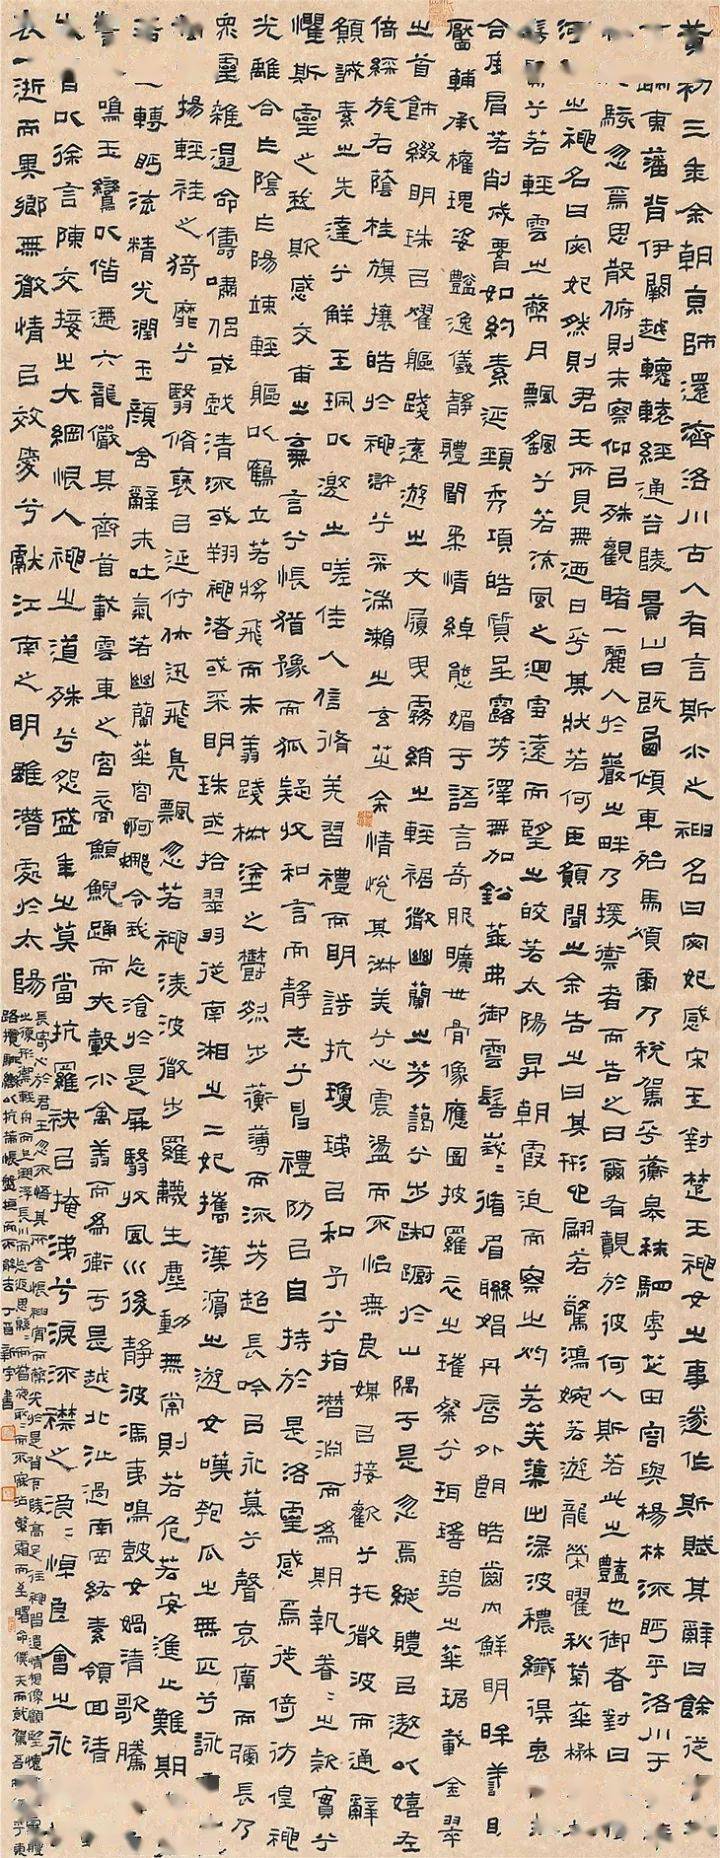 黄初三年余朝京師還濟洛川古人有言斯水之神名曰宓妃感宋玉對楚王神女之事遂作斯賦其辭曰餘從
歸東藩背伊闕越轘轅經通谷陵景山日既西傾車殆馬煩爾乃税駕乎蘅皋秣駟乎芝田容與楊林流眄乎洛川于
駭忽焉思散俯則未察仰以殊觀睹一麗人於巖之畔乃援御者而告之曰爾有覿於彼何人斯若此之豔也御者對曰
河之神名曰宓妃然則君王所見無迺日乎其狀若何臣願聞之余告之曰其形也翩若驚鴻婉若遊龍榮曜秋菊華楙
兮若輕雲之蔽月飄飖兮若流風之迴雪遠而望之皎若太陽昇朝霞迫而察之灼若芙蕖出淥波穠纖得衷
合度肩若削成腰如約素延頸秀項皓質呈露芳澤無加鉛華弗御雲髻峩峩脩眉聯娟丹唇外朗皓齒內鮮明眸善
靨輔承權瑰姿豔逸儀靜體閒柔情綽態媚于語言奇服曠世骨像應圖披羅衣之璀粲兮珥瑤碧之華琚戴金翠
之首飾綴明珠以耀軀踐遠遊之文履曳霧綃之輕裾微幽蘭之芳藹兮步踟躕於山隅于是忽焉縱體以遨以嬉左
倚綵旄右蔭桂旗攘皓於神滸兮采湍瀨之玄芝余情悅其淑美兮心震盪而不怡無良媒以接歡兮托微波而通辭
願誠素之先達兮解玉珮以邀之嗟佳人信脩羌習禮而明詩抗瓊珶以和予兮指潛淵而為期執眷眷之款實兮
懼斯靈之我欺感交甫之棄言兮悵猶豫而狐疑收和言而靜志兮申禮防以自持於是洛靈感焉徙倚彷徨神
光離合乍陰乍陽竦輕軀以鶴立若將飛而未翔踐椒塗之鬱烈步蘅薄而流芳超長吟以永慕兮聲哀厲而彌長乃
衆靈雜遝命儔嘯侶或戲清流或翔神渚或采明珠或拾翠羽從南湘之二妃攜漢濱之遊女嘆匏瓜之無匹兮詠
揚輕袿之猗靡兮翳脩袖以延佇休迅飛鳧飄忽若神淩波微步羅襪生塵動無常則若危若安進止難期
若轉眄流精光潤玉顏含辭未吐氣若幽蘭華容婀娜令我忘飡於是屏翳收風川後靜波馮夷鳴鼓女媧清歌騰
警鳴玉鸞以偕逝六龍儼其齊首載雲車之容裔鯨鯢踊而夾轂水禽翔而為衛于是越北沚過南岡紆素領回清
以徐言陳交接之大綱恨人神之道殊兮怨盛年之莫當抗羅袂以掩涕兮淚流襟之浪浪悼良會之永
去一逝而異鄉無微情以效愛兮獻江南之明雖潛處於太陽
長寄心於君王忽不悟其所舍悵神宵而蔽光於是背下陵高足往神留遺情想像顧望懷靈體
之復形御輕舟而上溯浮長川而忘返思綿綿而增慕夜耿耿而不寐沾繁霜而至曙命僕夫而就駕吾乎東
路攬騑轡以抗策悵盤桓而不能去丁酉新宇書